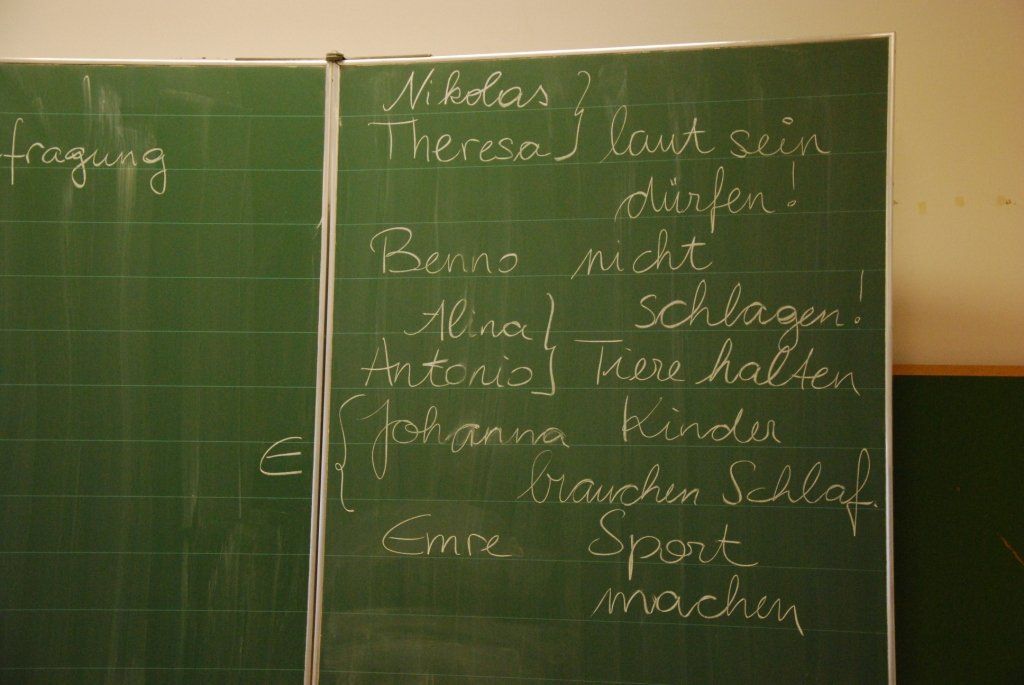 fragung
Nikolas }
Theresa } laut sein
dürfen!
Benno nicht
schlagen!
Alina }
Antonio } Tiere halten
E { Johanna Kinder
brauchen Schlaf.
Emre Sport
machen